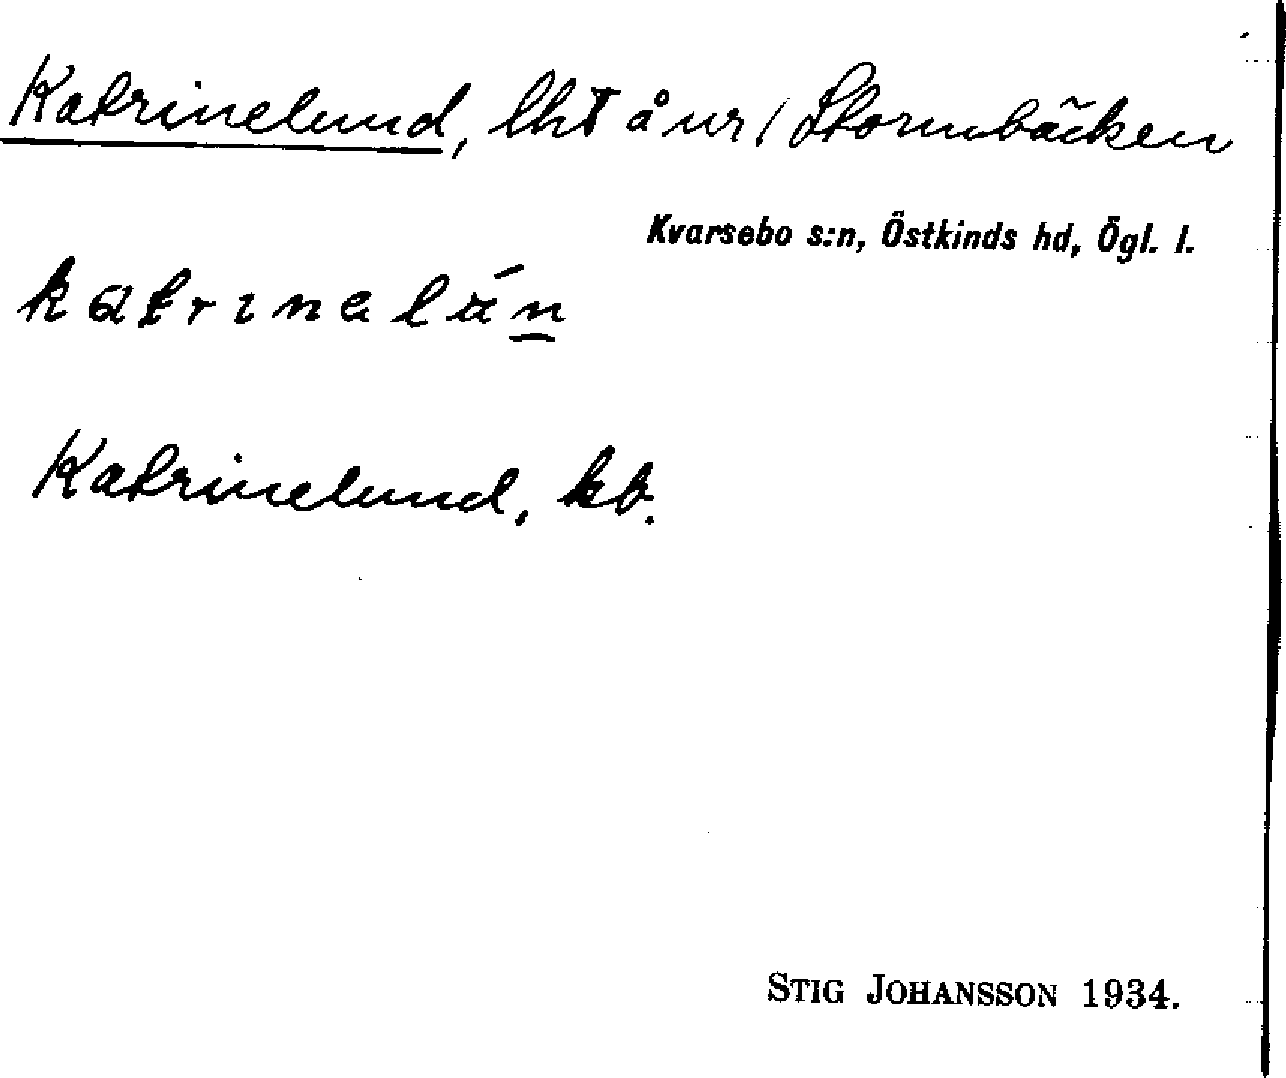 Katrinelund, lht å ur / Stormbäcken
Kvarsebo s:n, Östkinds hd, Ögl. l.
Katrinelund, kb.
STIG JOHANSSON 1934.